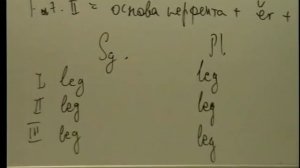 Fut. II = основа перфекта + ĕr +
Sg. Pl
I leg leg
II leg leg
III leg leg